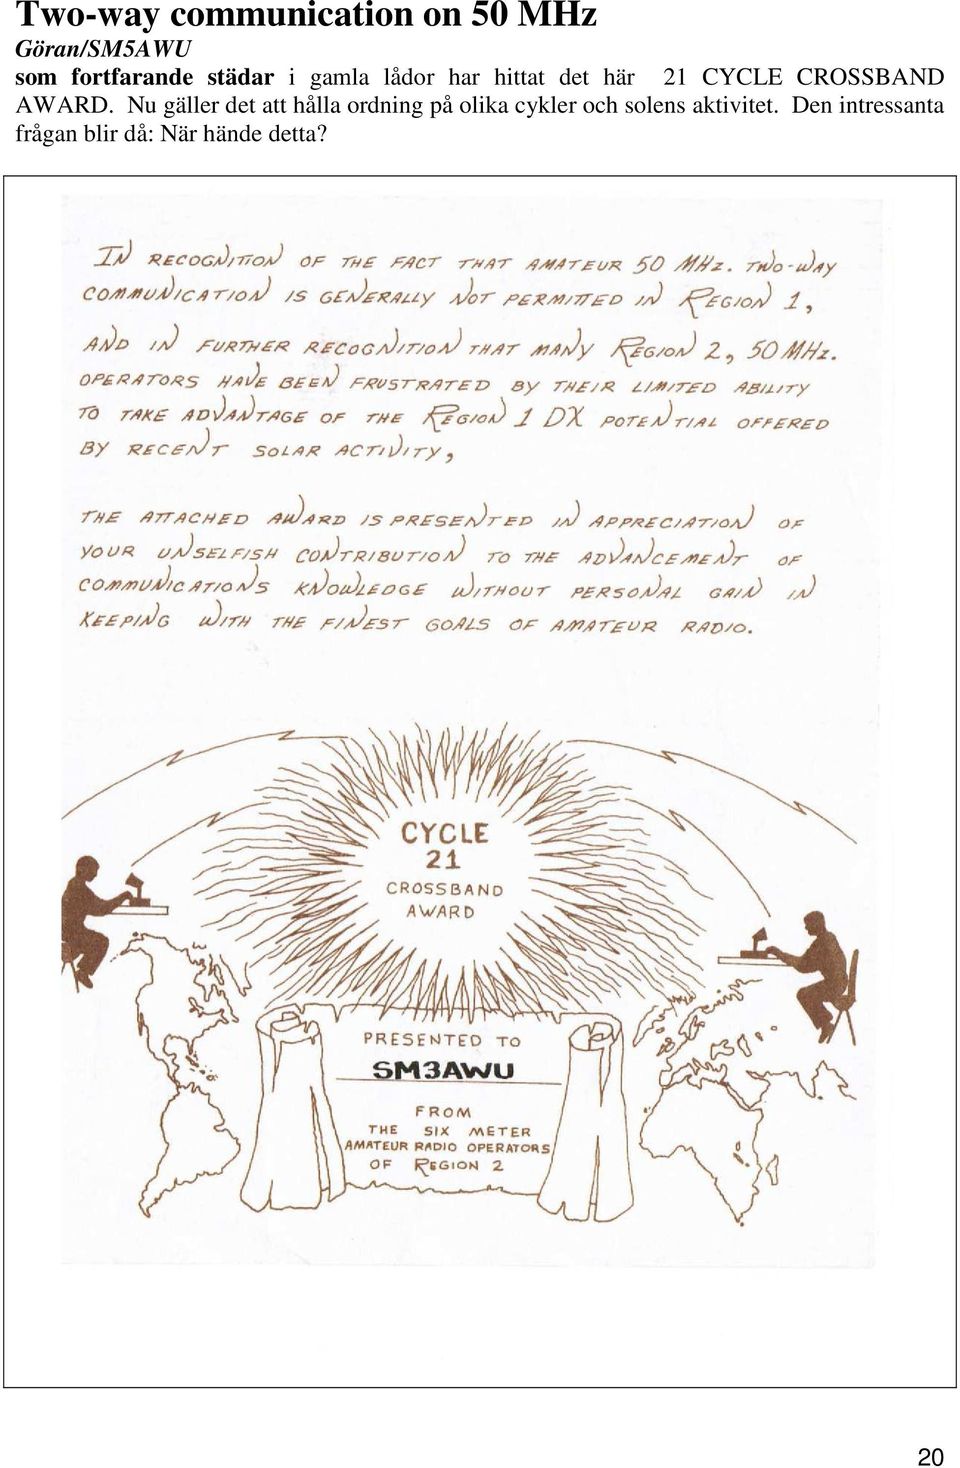 Two-way communication on 50 MHz
Göran/SM5AWU
som fortfarande städar i gamla lådor har hittat det här 21 CYCLE CROSSBAND
AWARD. Nu gäller det att hålla ordning på olika cykler och solens aktivitet. Den intressanta
frågan blir då: När hände detta?
IN RECOGNITION OF THE FACT THAT AMATEUR 50 MHz. TWO-WAY
COMMUNICATION IS GENERALLY NOT PERMITTED IN REGION 1,
AND IN FURTHER RECOGNITION THAT MANY REGION 2, 50 MHz.
OPERATORS HAVE BEEN FRUSTRATED BY THEIR LIMITED ABILITY
TO TAKE ADVANTAGE OF THE REGION 1 DX POTENTIAL OFFERED
BY RECENT SOLAR ACTIVITY,
THE ATTACHED AWARD IS PRESENTED IN APPRECIATION OF
YOUR UNSELFISH CONTRIBUTION TO THE ADVANCEMENT OF
COMMUNICATIONS KNOWLEDGE WITHOUT PERSONAL GAIN IN
KEEPING WITH THE FINEST GOALS OF AMATEUR RADIO.
CYCLE
21
CROSSBAND
AWARD
PRESENTED TO
SM3AWU
FROM
THE SIX METER
AMATEUR RADIO OPERATORS
OF REGION 2
20